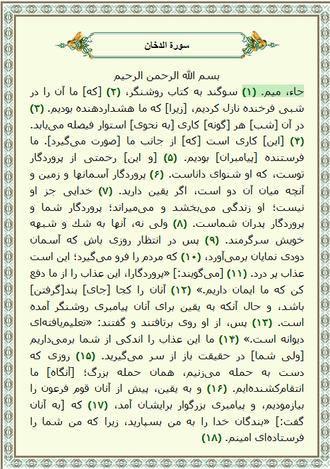 سورة الدخان
بسم الله الرحمن الرحیم
حاء، میم. (۱) سوگند به کتاب روشنگر، (۲) [که] ما آن را در
شبی فرخنده نازل کردیم، [زیرا] که ما هشداردهنده بودیم. (۳)
در آن [شب] هر [گونه] کاری [به نحوی] استوار فیصله می‌یابد.
(۴) [این] کاری است [که] از جانب ما [صورت می‌گیرد]. ما
فرستنده [پیامبران] بودیم. (۵) [و این] رحمتی از پروردگار
توست، که او شنوای داناست. (۶) پروردگار آسمانها و زمین و
آنچه میان آن دو است، اگر یقین دارید. (۷) خدایی جز او
نیست؛ او زندگی می‌بخشد و می‌میراند؛ پروردگار شما و
پروردگار پدران شماست. (۸) ولی نه، آنها به شك و شبهه
خویش سرگرمند. (۹) پس در انتظار روزی باش که آسمان
دودی نمایان برمی‌آورد، (۱۰) که مردم را فرو می‌گیرد؛ این است
عذاب پر درد. (۱۱) [می‌گویند:] «پروردگارا، این عذاب را از ما دفع
کن که ما ایمان داریم.» (۱۲) آنان را کجا [جای] پند[گرفتن]
باشد، و حال آنکه به یقین برای آنان پیامبری روشنگر آمده
است. (۱۳) پس، از او روی برتافتند و گفتند: «تعلیم‌یافته‌ای
دیوانه است.» (۱۴) ما این عذاب را اندکی از شما برمی‌داریم
[ولی شما] در حقیقت باز از سر می‌گیرید. (۱۵) روزی که
دست به حمله می‌زنیم، همان حمله بزرگ؛ [آنگاه] ما
انتقام‌کشنده‌ایم. (۱۶) و به یقین، پیش از آنان قوم فرعون را
بیازمودیم، و پیامبری بزرگوار برایشان آمد، (۱۷) که [به آنان
گفت:] «بندگان خدا را به من بسپارید، زیرا که من شما را
فرستاده‌ای امینم. (۱۸)